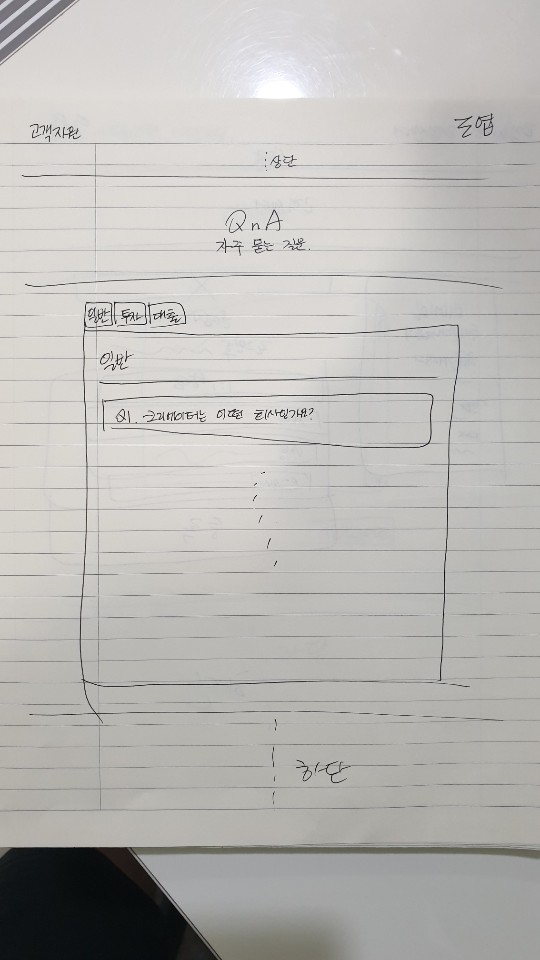 고객지원
도엽
상단
QnA
자주 묻는 질문.
일반 투자 대출
일반
Q1. 크리에이터는 어떤 회사인가요?
하단